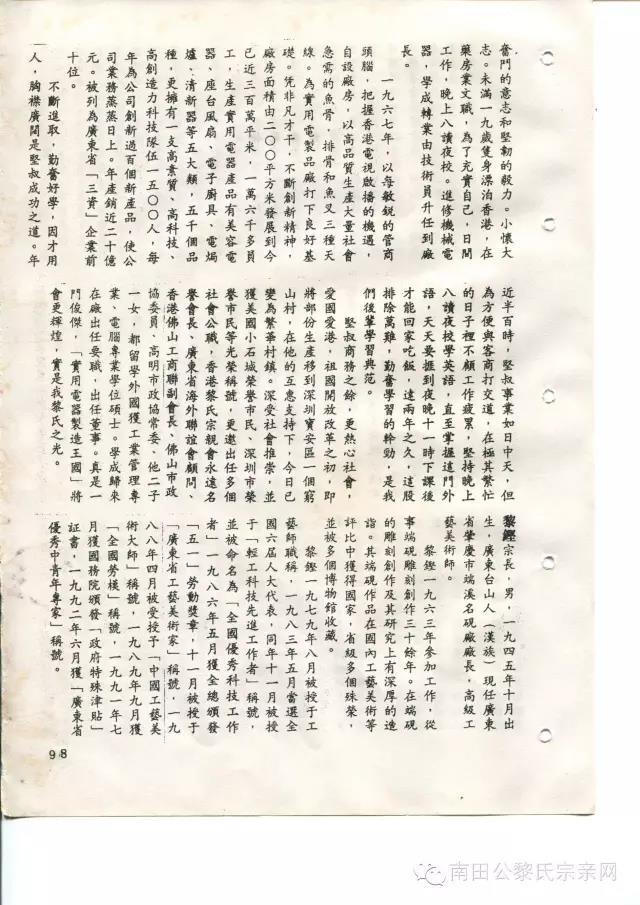 奮鬥的意志和堅韌的毅力。小懷大
志。未滿一九歲隻身漂泊香港,在
藥房業文職,為了充實自己,日間
工作,晚上八讀夜校。進修機械電
器,學成轉業由技術員升任到廠
長。
一九六七年,以每敏銳的管商
頭腦,把握香港電視啟播的機遇,
自設廠房,以高品質生產大量社會
急需的魚骨,排骨和魚叉三種天
線。為實用電製品廠打下良好基
礎。凭非凡才干,不斷創新精神,
廠房面積由二00平方米發展到今
已近三百萬平米,一萬六千多員
工,生產實用電器產品有美容電
器、座台風扇、電子廚具、電焗
爐、清新器等五大類,五千個品
種,更擁有一支高素質、高科技、
高創造力科技隊伍一五00人,每
年為公司創新過百個新產品,使公
司業務蒸蒸日上。年產銷近二十億
元。被列為廣東省「三資」企業前
十位。
不斷進取,勤奮好學,因才用
人,胸襟廣闊是堅叔成功之道。年
近半百時,堅叔事業如日中天,但
為方便與客商打交道,在極其繁忙
的日子裡不顧工作疲累,堅持晚上
八讀夜校學英語,直至掌握這門外
語,天天要捱到夜晚十一時下課後
才能回家吃飯,這兩年之久,這股
排除萬難,勤奮學習的幹勁,是我
們後輩學習典范。
堅叔商務之餘,更熱心社會,
愛國愛港,祖國開放改革之初,即
將部份生產移到深圳寶安區一個窮
山村,在他的互惠支持下,今日已
變為繁華村鎮。深受社會推崇,並
獲美國小石城榮譽市民、深圳市榮
譽市民等光榮稱號,更邀出任多個
社會公職,香港黎氏宗親會永遠名
譽會長、廣東省海外聯誼會顧問、
香港佛山工商聯副會長、佛山市政
協委員、高明市政協常委、他二子
一女,都留學外國獲工業管理專
業、電腦專業學位碩士。學成歸來
在廠出任要職,出任董事。真是一
門俊傑,「實用電器製造王國」將
會更輝煌,實是我黎氏之光。
黎鏗宗長,男,一九四五年十月出
生,廣東台山人(漢族)現任廣東
省肇慶市端溪名硯廠廠長,高級工
藝美術師。
黎鏗一九六三年參加工作,從
事端硯雕刻創作三十餘年。在端硯
的雕刻創作及其研究上有深厚的造
詣。其端硯作品在國內工藝美術等
評比中獲得國家,省級多個殊榮,
並被多個博物館收藏。
黎鏗一九七九年八月被授于工
藝師職稱,一九八三年五月當選全
國六屆人大代表,同年十一月被授
于「輕工科技先進工作者」稱號,
並被命名為「全國優秀科技工作
者」一九八六年五月獲全總頒發
「五一」勞動獎章,十一月被授于
「廣東省工藝美術家」稱號,一九
八八年四月被受授于「中國工藝美
術大師」稱號,一九八九年九月獲
「全國勞模」稱號,一九九一年七
月獲國務院頒發「政府特殊津貼」
証書,一九九二年六月獲「廣東省
優秀中青年專家」稱號。
98
南田公黎氏宗亲网